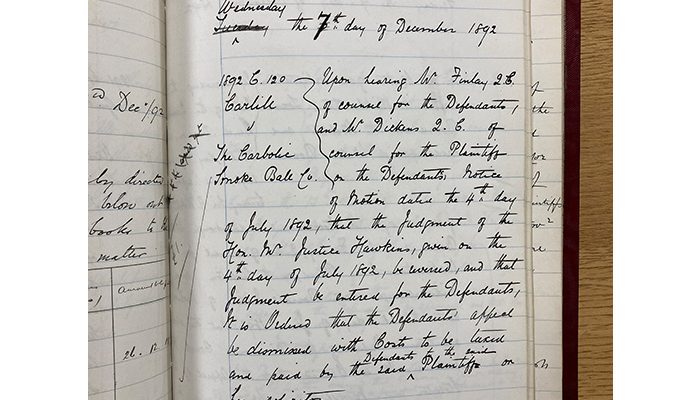 Wednesday
Tuesday the 7th day of December 1892
1892 C. 120 Upon hearing Mr. Finlay Q.C.
Carlill of counsel for the Defendants,
v and Mr. Dickens Q.C. of
The Carbolic counsel for the Plaintiff
Smoke Ball Co. on the Defendants' Notice
of Motion dated the 4th day
of July 1892, that the Judgment of the
Hon. Mr Justice Hawkins, given on the
4th day of July 1892, be reversed, and that
Judgment be entered for the Defendants,
It is Ordered that the Defendants' appeal
be dismissed with Costs to be taxed
Defendants to the said
and paid by the said Plaintiff or
Dec. /92
by directed
books to
matter
26. 12
of
the